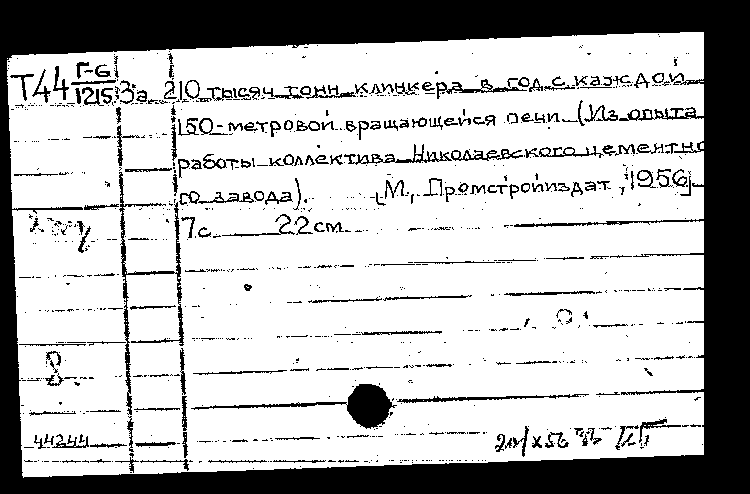 Т44 Г-6
1215 За 210 тысяч тонн клинкера в год с каждой
150-метровой вращающейся печи. (Из опыта
работы коллектива Николаевского цементно
го завода). [М., Промстройиздат, 1956]
7с. 22 см.
8.
44244